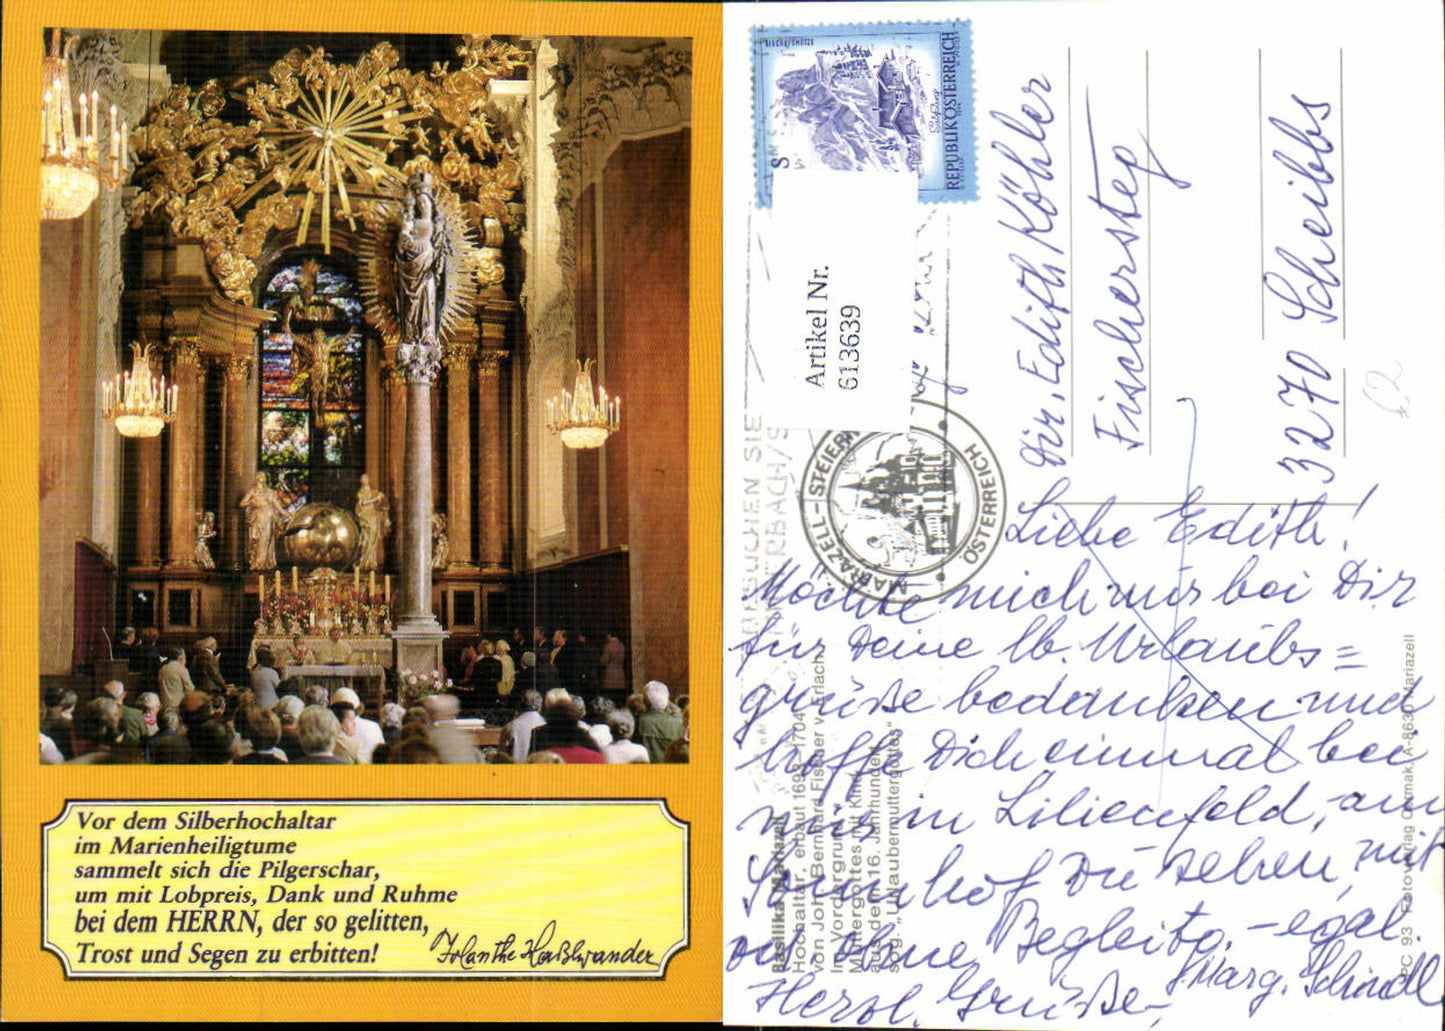 Vor dem Silberhochaltar
im Marienheiligtume
sammelt sich die Pilgerschar,
um mit Lobpreis, Dank und Ruhme
bei dem HERRN, der so gelitten,
Trost und Segen zu erbitten!
Jolanthe Haßlwander
REPUBLIK ÖSTERREICH
S
Artikel Nr.
613639
BESUCHEN SIE
MARIAZELL - STEIERM
ÖSTERREICH
Dir. Edith Köhler
Fischersteg
3270 Scheibbs
Liebe Edith!
Möchte mich nur bei Dir
für Deine lb. Urlaubs=
grüße bedanken und
hoffe Dich einmal bei
mir in Lilienfeld, am
zu sehen, mit
od. ohne Begleitg. - egal.
Herzl. Grüße,
Marg. Schindl
Basilika Mariazell
Hochaltar, erbaut 1693-1704
von Joh. Bernhard Fischer v. Erlach
Im Vordergrund
Muttergottes mit Kind
aus dem 16. Jahrhundert
sog. „Urlaubermuttergottes“
PC 93 Fotoverlag A-8630 Mariazell